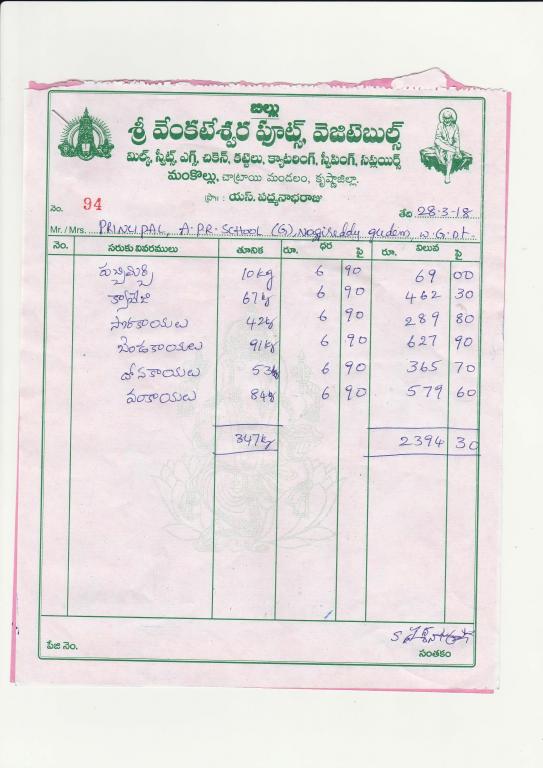 బిల్లు
శ్రీ వేంకటేశ్వర ఫ్రూట్స్, వెజిటెబుల్స్
మిల్క్, స్వీట్స్, ఎగ్స్, చికెన్, కట్టెలు, క్యాటరింగ్, స్వీపింగ్, సప్లయిర్స్
మంకొల్లు, చాట్రాయి మండలం, కృష్ణాజిల్లా.
ప్రొ॥ : యస్. పద్మనాభరాజు
నెం. 94 తేది 28-3-18
Mr. / Mrs. PRINCIPAL, A.P.R. SCHOOL (G), Nagireddy gudem, W.G.Dt.
నెం. సరుకు వివరములు తూనిక రూ. ధర పై రూ. విలువ పై
10kg 6 90 69 00
క్యాబేజి 67kg 6 90 462 30
సొరకాయలు 42kg 6 90 289 80
బెండకాయలు 91kg 6 90 627 90
దోసకాయలు 53kg 6 90 365 70
వంకాయలు 84kg 6 90 579 60
347kg 2394 30
పేజి నెం. సంతకం